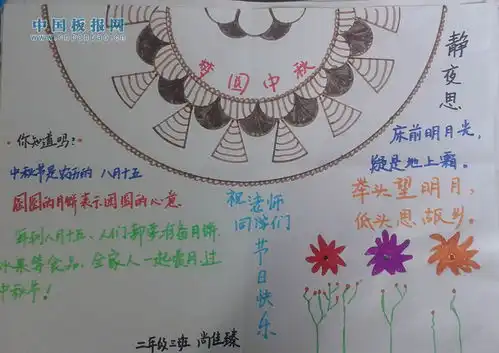 中国板报网
www.cnbanbao.cn
梦圆中秋
静夜思
床前明月光,
疑是地上霜。
举头望明月,
低头思故乡。
·你知道吗?
中秋节是农历的 八月十五
圆圆的月饼表示团圆的心意
年到八月十五、人们都要有每月饼
水果等食品,全家人一起赏月过
中秋年!
祝老师
同学们
节日快乐
二年级三班 尚佳臻